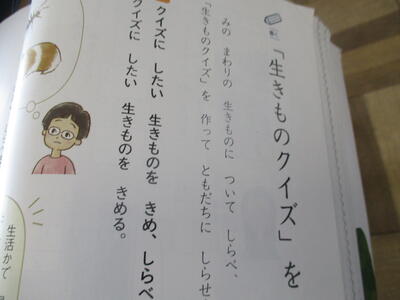 「生きものクイズ」を
みの まわりの 生きものに ついて しらべ、
「生きものクイズ」を 作って ともだちに しらせ
クイズに したい 生きものを きめ、しらべ
クイズに したい 生きものを きめる。
生活かで